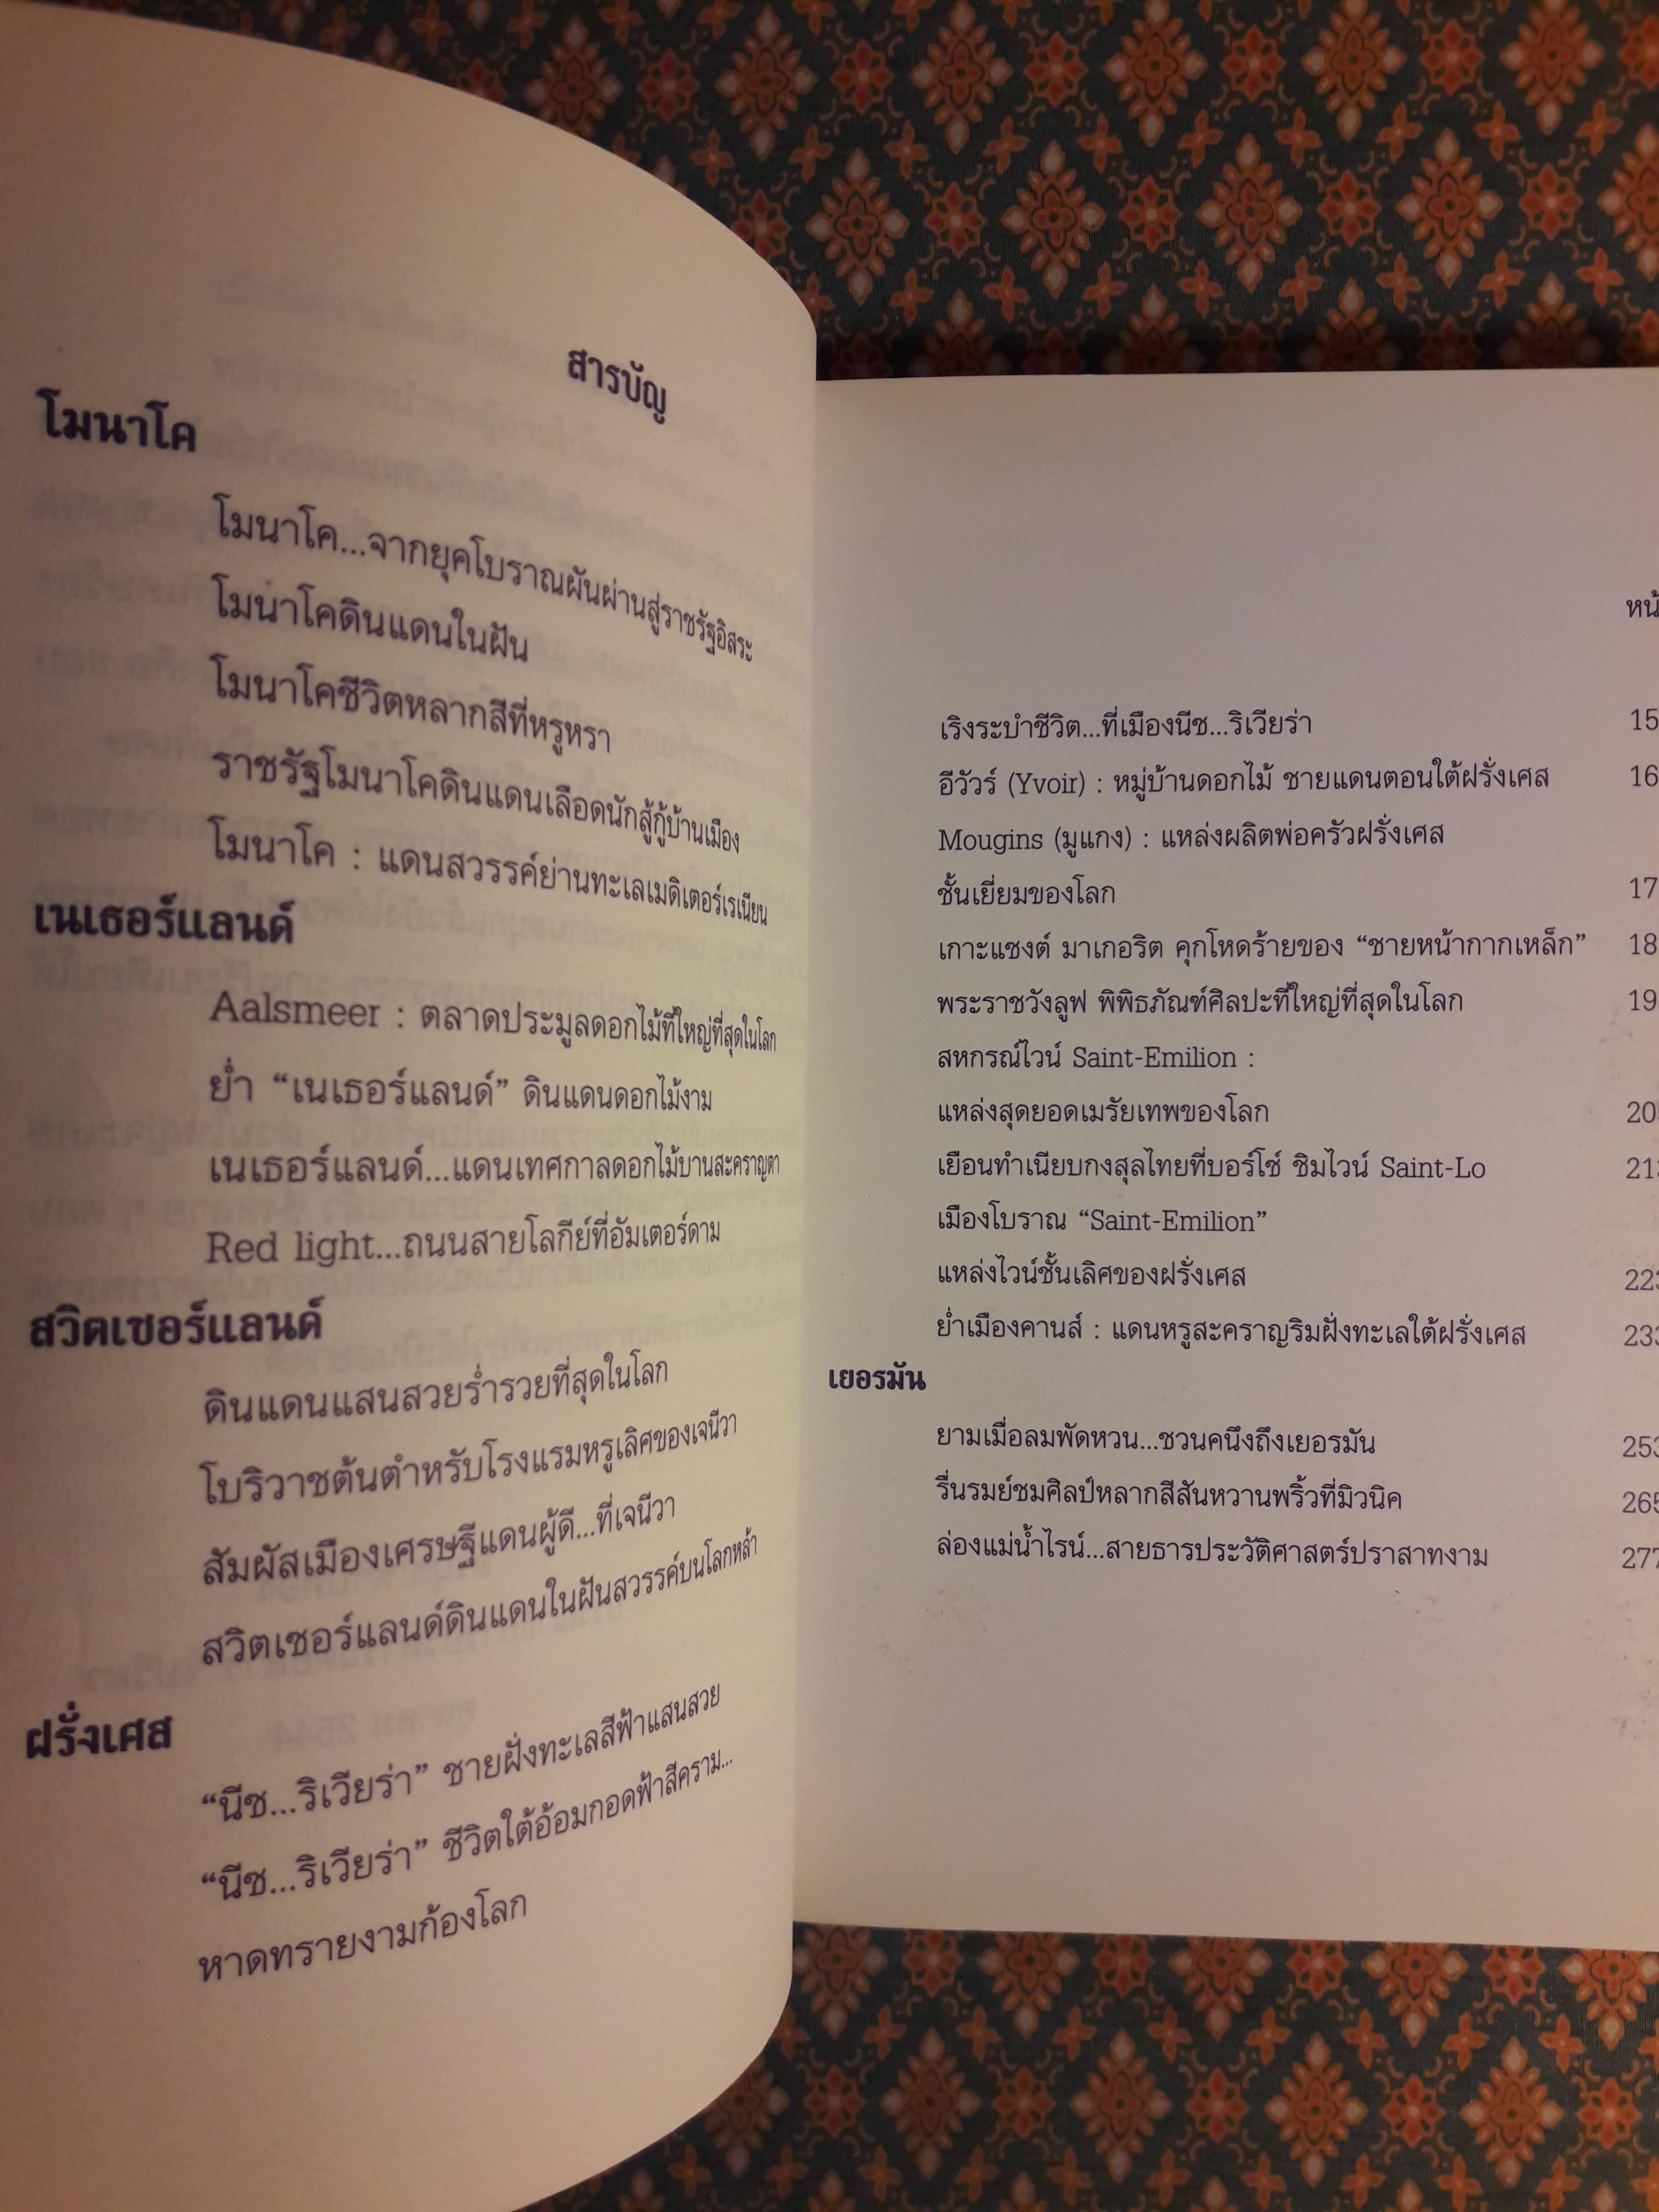 สารบัญ
โมนาโค
โมนาโค...จากยุคโบราณผันผ่านสู่ราชรัฐอิสระ
โมนาโคดินแดนในฝัน
โมนาโคชีวิตหลากสีที่หรูหรา
ราชรัฐโมนาโคดินแดนเลือดนักสู้กู้บ้านเมือง
โมนาโค : แดนสวรรค์ย่านทะเลเมดิเตอร์เรเนียน
เนเธอร์แลนด์
Aalsmeer : ตลาดประมูลดอกไม้ที่ใหญ่ที่สุดในโลก
ย่ำ “เนเธอร์แลนด์” ดินแดนดอกไม้งาม
เนเธอร์แลนด์...แดนเทศกาลดอกไม้บานสะคราญตา
Red light...ถนนสายโลกีย์ที่อัมเตอร์ดาม
สวิตเซอร์แลนด์
ดินแดนแสนสวยร่ำรวยที่สุดในโลก
โบริวาชต้นตำหรับโรงแรมหรูเลิศของเจนีวา
สัมผัสเมืองเศรษฐีแดนผู้ดี...ที่เจนีวา
สวิตเซอร์แลนด์ดินแดนในฝันสวรรค์บนโลกหล้า
ฝรั่งเศส
“นีซ...ริเวียร่า” ชายฝั่งทะเลสีฟ้าแสนสวย
“นีซ...ริเวียร่า” ชีวิตใต้อ้อมกอดฟ้าสีคราม...
หาดทรายงามก้องโลก
หน้
เริงระบำชีวิต...ที่เมืองนีซ...ริเวียร่า 15
อีวัวร์ (Yvoir) : หมู่บ้านดอกไม้ ชายแดนตอนใต้ฝรั่งเศส 16
Mougins (มูแกง) : แหล่งผลิตพ่อครัวฝรั่งเศส
ชั้นเยี่ยมของโลก 17
เกาะแซงต์ มาเกอริต คุกโหดร้ายของ “ชายหน้ากากเหล็ก” 18
พระราชวังลูฟ พิพิธภัณฑ์ศิลปะที่ใหญ่ที่สุดในโลก 19
สหกรณ์ไวน์ Saint-Emilion :
แหล่งสุดยอดเมรัยเทพของโลก 205
เยือนทำเนียบกงสุลไทยที่บอร์โช์ ชิมไวน์ Saint-Lo 213
เมืองโบราณ “Saint-Emilion”
แหล่งไวน์ชั้นเลิศของฝรั่งเศส 223
ย่ำเมืองคานส์ : แดนหรูสะคราญริมฝั่งทะเลใต้ฝรั่งเศส 233
เยอรมัน
ยามเมื่อลมพัดหวน...ชวนคนึงถึงเยอรมัน 253
รื่นรมย์ชมศิลป์หลากสีสันหวานพริ้วที่มิวนิค 265
ล่องแม่น้ำไรน์...สายธารประวัติศาสตร์ปราสาทงาม 277